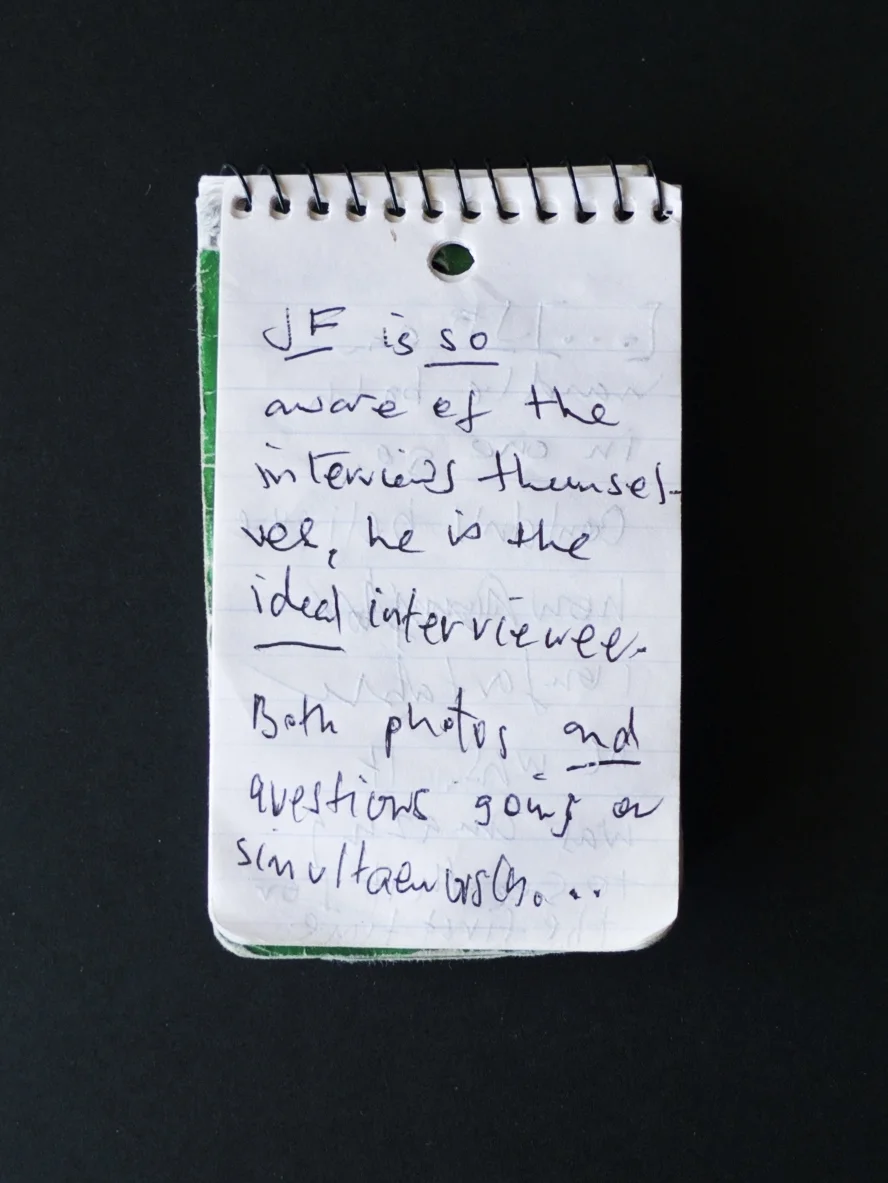 JF is so
aware of the
interviews themsel-
ves, he is the
ideal interviewee.
Both photos and
questions going on
simultaneously...